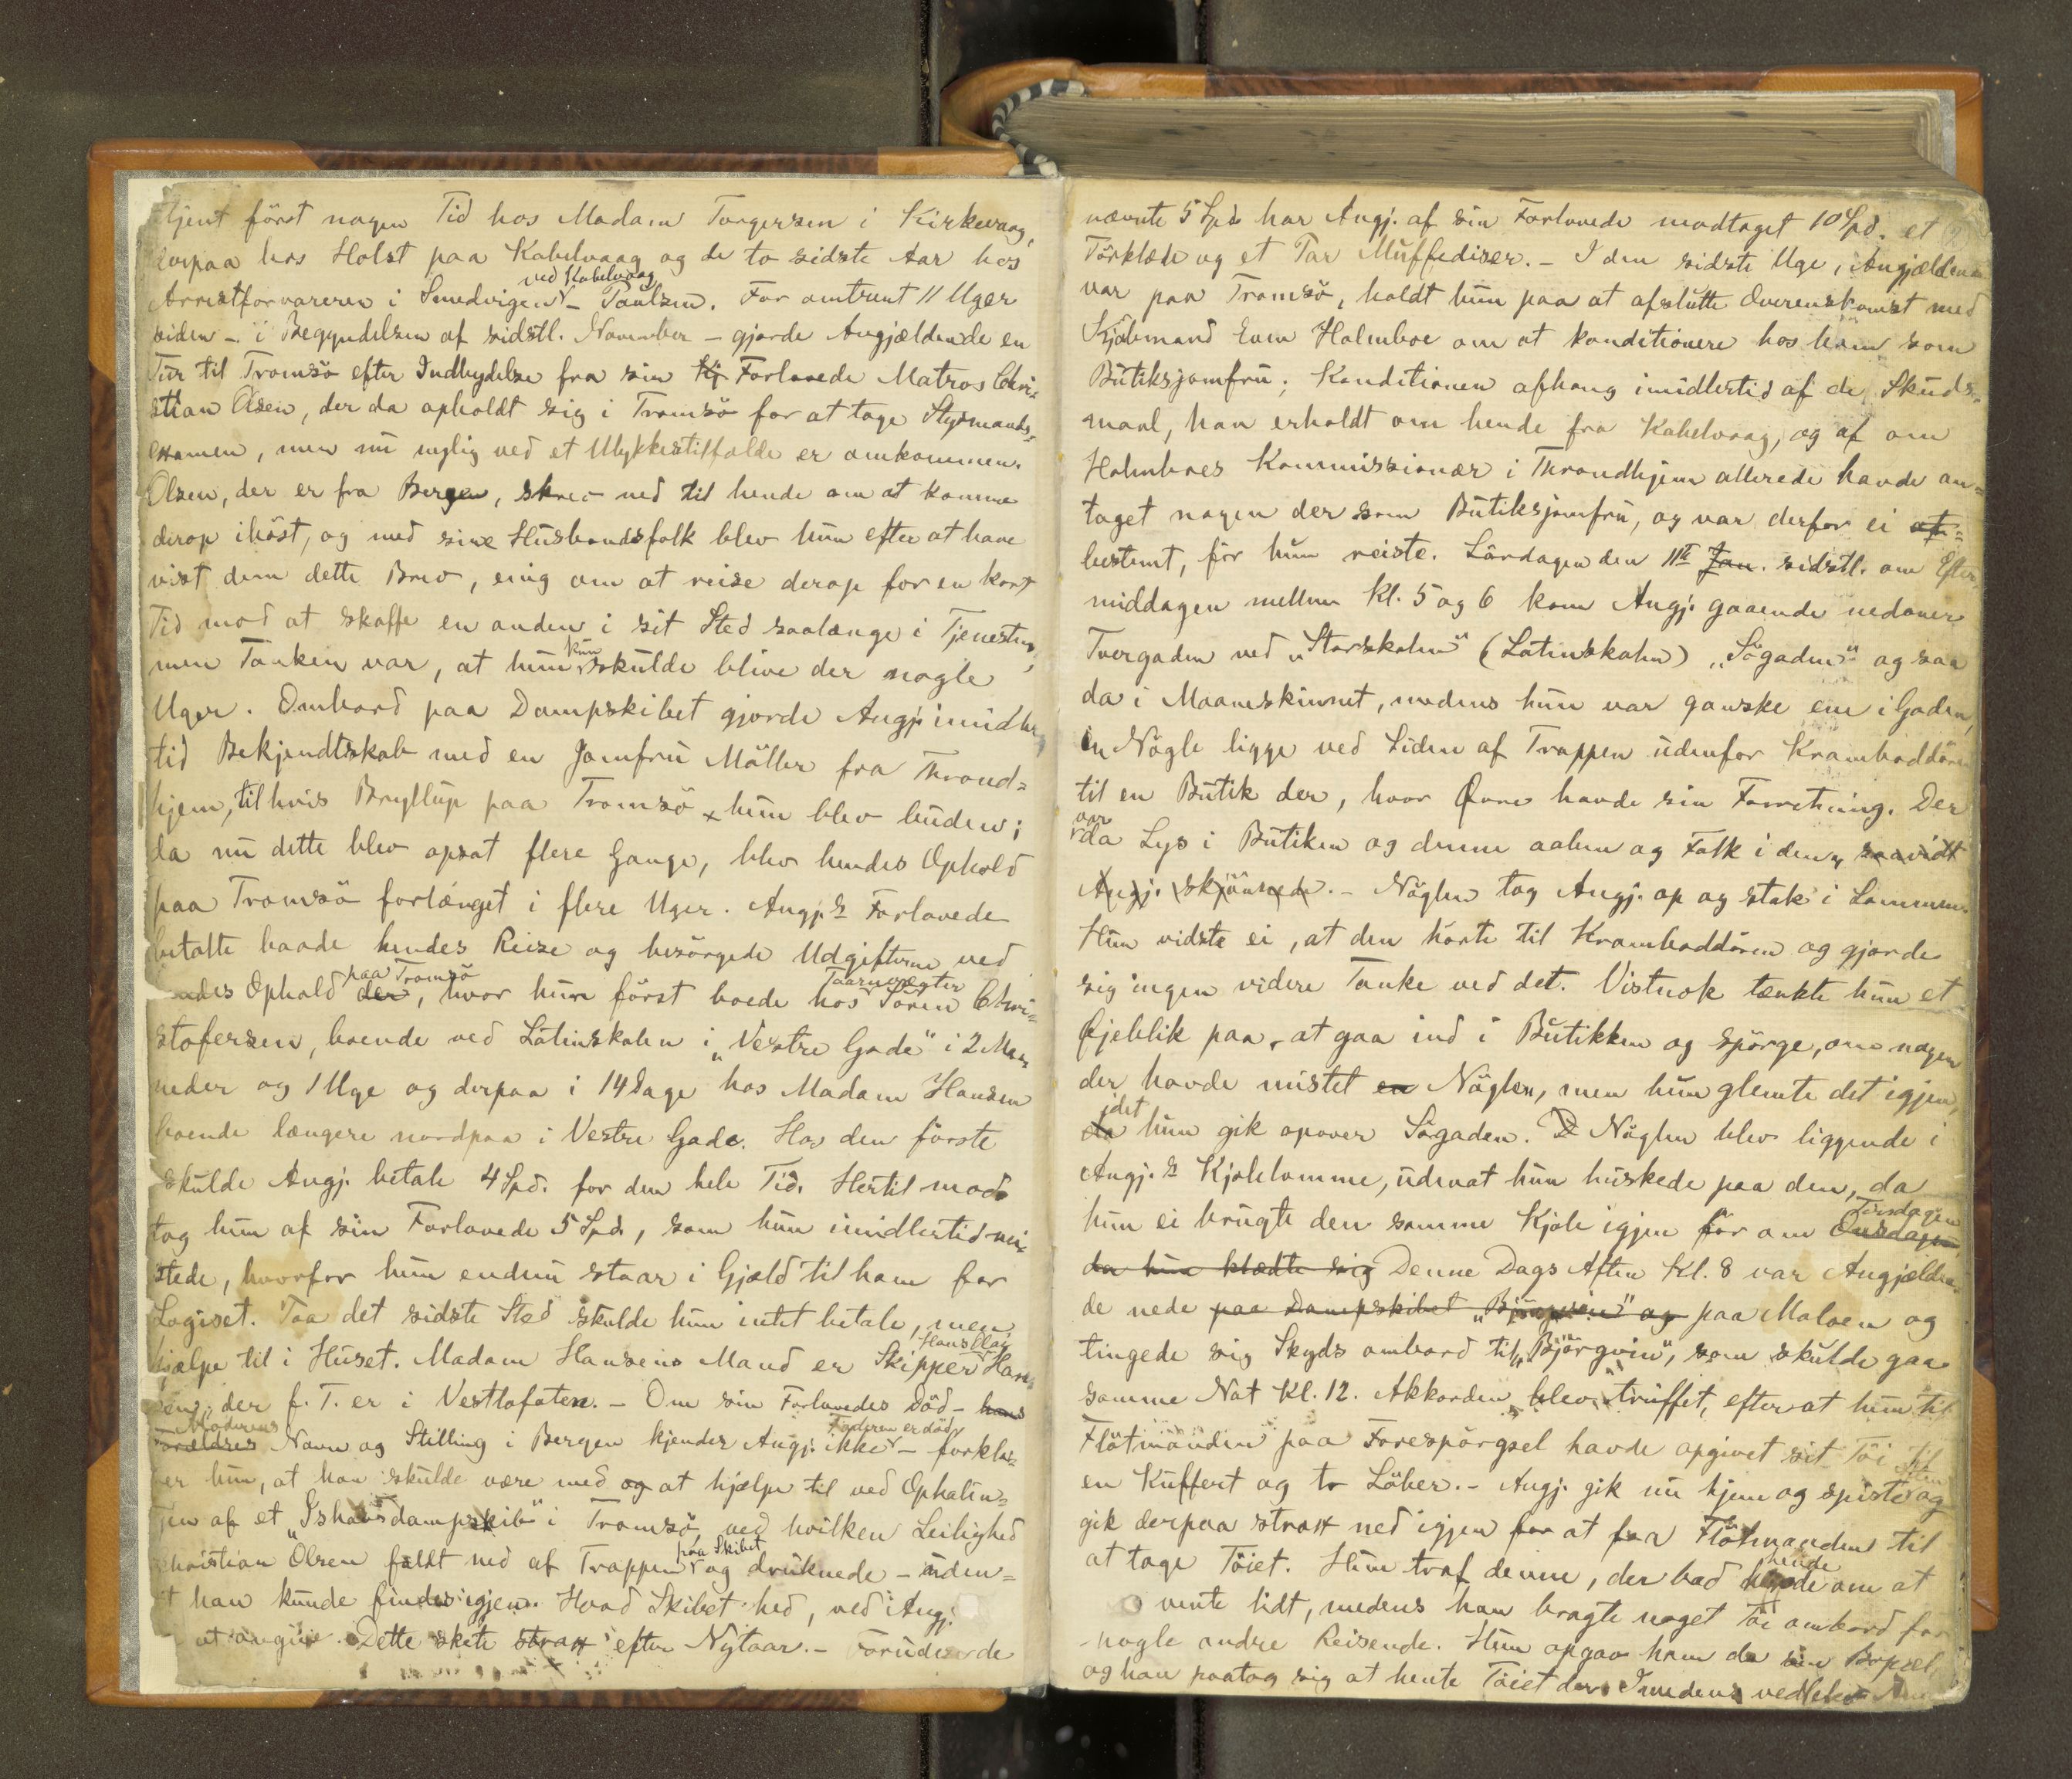 tjent först nogen Tid hos Madam Torgersen i Kirkevaag,
derpaa hos Holst paa Kabelvaag og de to sidste Aar hos
ved Kabelvaag
Arrestforvareren i Smedvigen – Paulsen. For omtrent 11 Uger
siden – i Begyndelsen af sidstl. November – gjorde Angjældende en
Tur til Tromsö efter Indbydelse fra sin Kj Forlovede Matros Chri=
stian Olsen, der da opholdt sig i Tromsö for at tage Styrmands=
examen, men nu nylig ved et Ulykkestilfælde er omkommen.
Olsen, der er fra Bergen, skrev ned til hende om at komme
derop ihöst, og med sine Husbondsfolk blev hun efter at have
vist dem dette Brev, enig om at reise derop for en kort
Tid mod at skaffe en anden i sit Sted saalænge i Tjenesten,
kun
men Tanken var, at hun skulde blive der nogle
Uger. Ombord paa Dampskibet gjorde Angj. imidler=
tid Bekjendtskab med en Jomfru Möller fra Thrond=
hjem, til hvis Bryllup paa Tromsö hun blev buden;
da nu dette blev opsat flere Gange, blev hendes Ophold
paa Tromsö forlænget i flere Uger. Angj.s Forlovede
betalte baade hendes Reise og besörgede Udgifterne ved
paa Tromsö Taarnvægter
hendes Ophold der, hvor hun först boede hos Sören Chri=
stofersen, boende ved Latinskolen i „Vestre Gade" i 2 Maa=
neder og 1 Uge og derpaa i 14 Dage hos Madam Hansen
boende længere nordpaa i Vestre Gade. Hos den förste
skulde Angj. betale 4 Spd. for den hele Tid. Hertil mod=
tog hun af sin Forlovede 5 Spd., som hun imidlertid mi=
stede, hvorfor hun endnu staar i Gjæld til ham for
Logiset. Paa det sidste Sted skulde hun intet betale, men
Hans Claj
hjælpe til i Huset. Madam Hansens Mand er Skipper Han=
sen, der p. T. er i Vestlofoten. – Om sin Forlovedes Död – hans
Moderens Faderen er död
Forældres Navn og Stilling i Bergen kjender Angj. ikke – forkla=
rer hun, at han skulde være med og at hjælpe til ved Ophalin=
gen af et „Ishavsdampskib" i Tromsö, ved hvilken Leilighed
paa Skibet
Christian Olsen faldt ned af Trappen og druknede – uden=
at han kunde findes igjen. Hvad Skibet hed, ved Angj.
at angive. Dette skete strax efter Nytaar. – Foruden de
nævnte 5 Spd. har Angj. af sin Forlovede modtaget 10 Spd. et 2
Törklæde og et Par Muffediser. – I den sidste Uge, Angjældende
var paa Tromsö, holdt hun paa at afslutte Overenskomst med
Kjöbmand Even Holmboe om at konditionere hos ham som
Butiksjomfru; Konditionen afhang imidlertid af de Skuds=
maal, han erholdt om hende fra Kabelvaag, og af om
Holmboes Kommissionær i Throndhjem allerede havde an=
taget nogen der som Butiksjomfru, og var derfor ei af=
bestemt, för hun reiste. Lördagen den 11te Jan. sidstl. om Efter
middagen mellem Kl. 5 og 6 kom Angj. gaaende nedover
Tvergaden ved „Storskolen" (Latinskolen) „Sögaden" og saa
da i Maaneskinnet, medens hun var ganske ene i Gaden,
en Nögle ligge ved Siden af Trappen udenfor Kramboddören
til en Butik der, hvor Övre havde sin Forretning. Der
var
da Lys i Butiken og denne aaben og Folk i den, saavidt
Angj. skjönnede. – Nöglen tog Angj. op og stak i Lommen.
Hun vidste ei, at den hörte til Kramboddören og gjorde
sig ingen videre Tanke ved det. Vistnok tænkte hun et
Öjeblik paa, at gaa ind i Butikken og spörge, om nogen
der havde mistet en Nöglen, men hun glemte det igjen,
idet
da hun gik opover Sögaden. D Nöglen blev liggende i
Angj.s Kjolelomme, udenat hun huskede paa den, da
Tirsdagen
hun ei brugte den samme Kjole igjen för om Onsdagen
da hun klædte sig Denne Dags Aften Kl. 8 var Angjælden=
de nede paa Dampskibet „Björgvin" og paa Moloen og
tingede sig Skyds ombord til „Björgvin", som skulde gaa
samme Nat Kl. 12. Akkorden blev truffet, efterat hun til
Flötmanden paa Forespörgsel havde opgivet sit Töi til
en Kuffert og to Löber. – Angj. gik nu hjem og spiste og
gik derpaa strax ned igjen for at faa Flötmanden til
hende
at tage Töiet. Hun traf denne, der bad hende om at
vente lidt, medens han bragte noget Töi ombord for
nogle andre Reisende. Hun opgav ham da sin Bopæl
og han paatog sig at hente Töiet der. Imedens vedblev